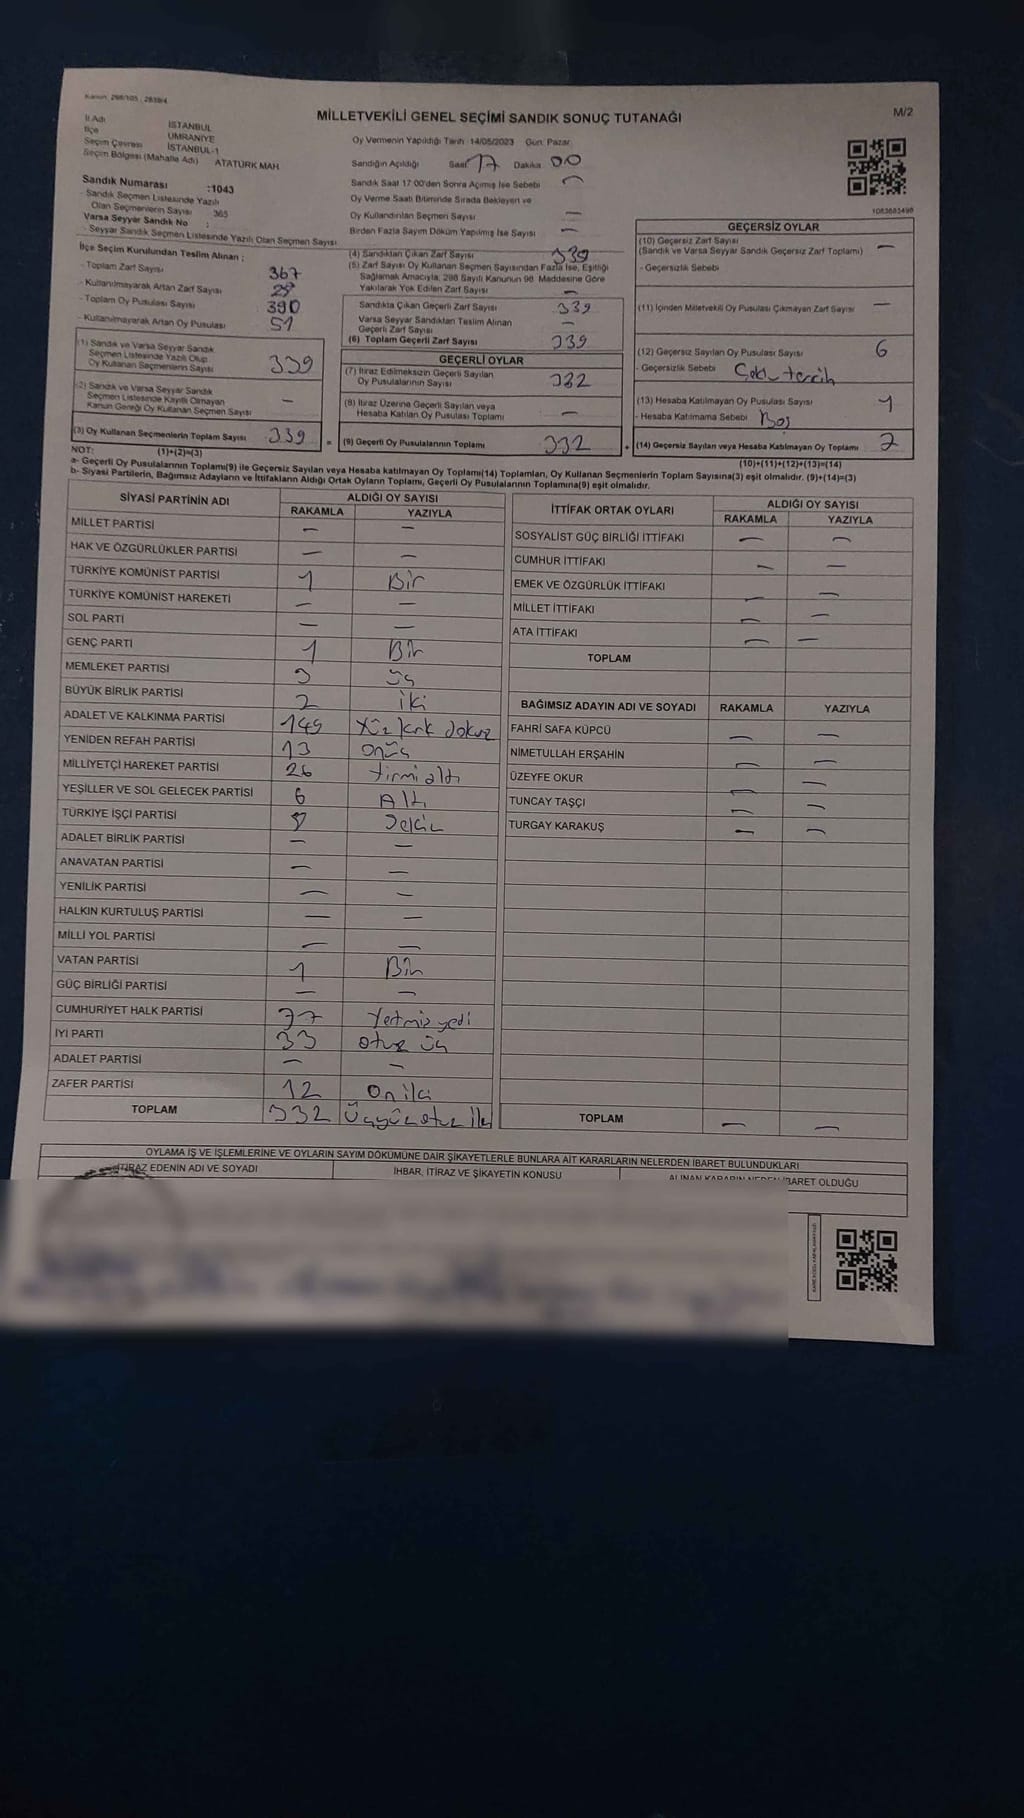 Kanun: 298/105 , 2839/4
M/2
MİLLETVEKİLİ GENEL SEÇİMİ SANDIK SONUÇ TUTANAĞI
İl Adı İSTANBUL
İlçe ÜMRANİYE
Seçim Çevresi İSTANBUL-1
Seçim Bölgesi (Mahalle Adı) ATATÜRK MAH.
Sandık Numarası :1043
- Sandık Seçmen Listesinde Yazılı
Olan Seçmenlerin Sayısı 365
Varsa Seyyar Sandık No :
- Seyyar Sandık Seçmen Listesinde Yazılı Olan Seçmen Sayısı
İlçe Seçim Kurulundan Teslim Alınan ;
- Toplam Zarf Sayısı 367
- Kullanılmayarak Artan Zarf Sayısı 28
- Toplam Oy Pusulası Sayısı 390
- Kullanılmayarak Artan Oy Pusulası 51
(1) Sandık ve Varsa Seyyar Sandık
Seçmen Listesinde Yazılı Olup
Oy Kullanan Seçmenlerin Sayısı 339
(2) Sandık ve Varsa Seyyar Sandık
Seçmen Listesinde Kayıtlı Olmayan
Kanun Gereği Oy Kullanan Seçmen Sayısı —
(3) Oy Kullanan Seçmenlerin Toplam Sayısı 339 =
Oy Vermenin Yapıldığı Tarih 14/05/2023 Gün: Pazar
Sandığın Açıldığı Saat 17 Dakika 00
Sandık Saat 17:00'den Sonra Açılmış İse Sebebi —
Oy Verme Saati Bitiminde Sırada Bekleyen ve
Oy Kullandırılan Seçmen Sayısı —
Birden Fazla Sayım Döküm Yapılmış İse Sayısı —
(4) Sandıktan Çıkan Zarf Sayısı 339
(5) Zarf Sayısı Oy Kullanan Seçmen Sayısından Fazla İse, Eşitliği
Sağlamak Amacıyla, 298 Sayılı Kanunun 98. Maddesine Göre
Yakılarak Yok Edilen Zarf Sayısı —
Sandıkta Çıkan Geçerli Zarf Sayısı 339
Varsa Seyyar Sandıktan Teslim Alınan
Geçerli Zarf Sayısı —
(6) Toplam Geçerli Zarf Sayısı 339
GEÇERLİ OYLAR
(7) İtiraz Edilmeksizin Geçerli Sayılan
Oy Pusulalarının Sayısı 332
(8) İtiraz Üzerine Geçerli Sayılan veya
Hesaba Katılan Oy Pusulası Toplamı —
(9) Geçerli Oy Pusulalarının Toplamı 332 +
1083683498
GEÇERSİZ OYLAR
(10) Geçersiz Zarf Sayısı —
(Sandık ve Varsa Seyyar Sandık Geçersiz Zarf Toplamı)
- Geçersizlik Sebebi
(11) İçinden Milletvekili Oy Pusulası Çıkmayan Zarf Sayısı —
(12) Geçersiz Sayılan Oy Pusulası Sayısı 6
- Geçersizlik Sebebi Çoklu tercih
(13) Hesaba Katılmayan Oy Pusulası Sayısı 1
- Hesaba Katılmama Sebebi Boş
(14) Geçersiz Sayılan veya Hesaba Katılmayan Oy Toplamı 7
NOT: (1)+(2)=(3) (10)+(11)+(12)+(13)=(14)
a- Geçerli Oy Pusulalarının Toplamı(9) ile Geçersiz Sayılan veya Hesaba katılmayan Oy Toplamı(14) Toplamları, Oy Kullanan Seçmenlerin Toplam Sayısına(3) eşit olmalıdır. (9)+(14)=(3)
b- Siyasi Partilerin, Bağımsız Adayların ve İttifakların Aldığı Ortak Oyların Toplamı, Geçerli Oy Pusulalarının Toplamına(9) eşit olmalıdır.
SİYASİ PARTİNİN ADI ALDIĞI OY SAYISI
RAKAMLA YAZIYLA
MİLLET PARTİSİ — —
HAK VE ÖZGÜRLÜKLER PARTİSİ — —
TÜRKİYE KOMÜNİST PARTİSİ 1 Bir
TÜRKİYE KOMÜNİST HAREKETİ — —
SOL PARTİ — —
GENÇ PARTİ 1 Bir
MEMLEKET PARTİSİ 3 üç
BÜYÜK BİRLİK PARTİSİ 2 iki
ADALET VE KALKINMA PARTİSİ 149 Yüz kırk dokuz
YENİDEN REFAH PARTİSİ 13 onüç
MİLLİYETÇİ HAREKET PARTİSİ 26 Yirmi altı
YEŞİLLER VE SOL GELECEK PARTİSİ 6 Altı
TÜRKİYE İŞÇİ PARTİSİ 8 Sekiz
ADALET BİRLİK PARTİSİ — —
ANAVATAN PARTİSİ — —
YENİLİK PARTİSİ — —
HALKIN KURTULUŞ PARTİSİ — —
MİLLİ YOL PARTİSİ — —
VATAN PARTİSİ 1 Bir
GÜÇ BİRLİĞİ PARTİSİ — —
CUMHURİYET HALK PARTİSİ 77 Yetmiş yedi
İYİ PARTİ 33 otuz üç
ADALET PARTİSİ — —
ZAFER PARTİSİ 12 On iki
TOPLAM 332 Üçyüz otuz iki
İTTİFAK ORTAK OYLARI ALDIĞI OY SAYISI
RAKAMLA YAZIYLA
SOSYALİST GÜÇ BİRLİĞİ İTTİFAKI — —
CUMHUR İTTİFAKI — —
EMEK VE ÖZGÜRLÜK İTTİFAKI — —
MİLLET İTTİFAKI — —
ATA İTTİFAKI — —
TOPLAM
BAĞIMSIZ ADAYIN ADI VE SOYADI RAKAMLA YAZIYLA
FAHRİ SAFA KÜPCÜ — —
NİMETULLAH ERŞAHİN — —
ÜZEYFE OKUR — —
TUNCAY TAŞÇI — —
TURGAY KARAKUŞ — —
TOPLAM — —
OYLAMA İŞ VE İŞLEMLERİNE VE OYLARIN SAYIM DÖKÜMÜNE DAİR ŞİKAYETLERLE BUNLARA AİT KARARLARIN NELERDEN İBARET BULUNDUKLARI
İTİRAZ EDENİN ADI VE SOYADI İHBAR, İTİRAZ VE ŞİKAYETİN KONUSU ALINAN KARARIN NEDEN İBARET OLDUĞU